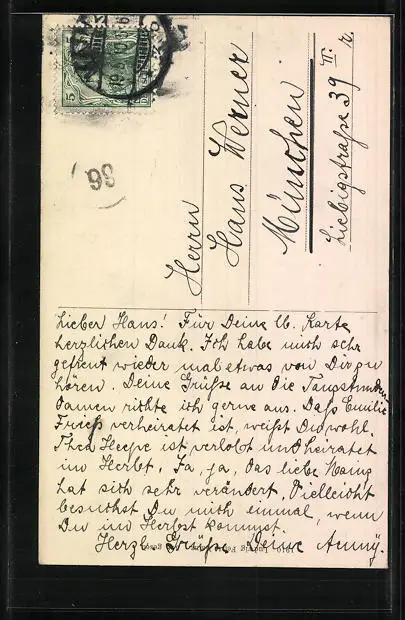 Herrn
Hans Werner
München
Liebigstraße 39 II. r.
98
5
Lieber Hans! Für Deine lb. Karte
herzlichen Dank. Ich habe mich sehr
gefreut wieder mal etwas von Dir zu
hören. Deine Grüße an die Tanzstunden
damen richte ich gerne aus. Daß Emilie
Frieß verheiratet ist, weißt Du wohl.
Thea Heepe ist verlobt und heiratet
im Herbst. Ja, ja, das liebe Mainz
hat sich sehr verändert. Vielleicht
besuchst Du mich einmal, wenn
Du im Herbst kommst.
Herzl. Grüße Deine Anny.